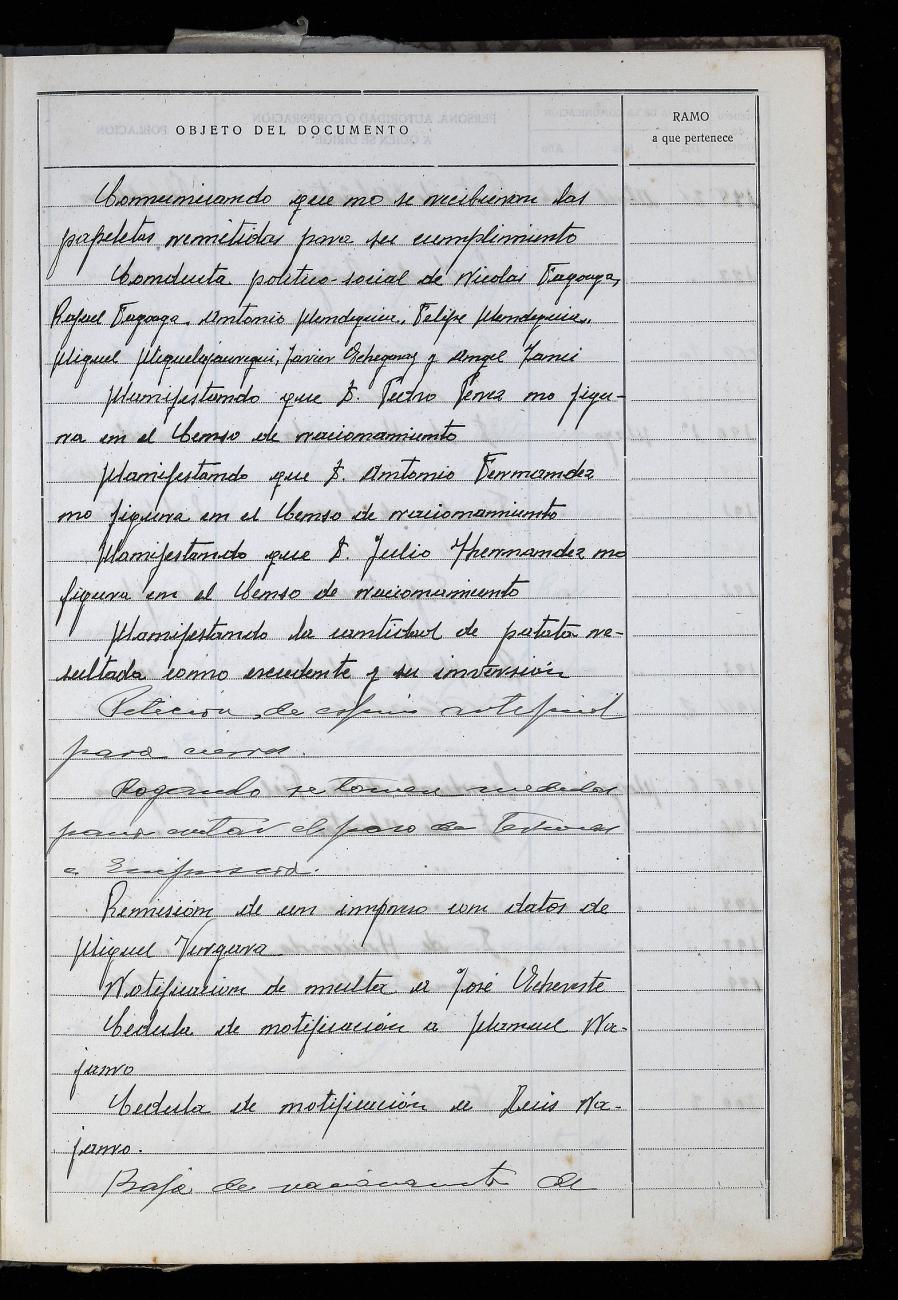 OBJETO DEL DOCUMENTO
RAMO
a que pertenece
Comunicando que no se recibieron las
papeletas remitidas para su cumplimiento
Conducta politico-social de Nicolas Tagoaga,
Rafael Tagoaga, Antonio Mendeguia, Felipe Mendeguia,
Miguel Miquelajauregui, Javier Echegaray y Angel
Manifestando que D. Pedro Perez no figu-
ra en el Censo de racionamiento
Manifestando que D. Antonio Fernandez
no figura en el Censo de racionamiento
Manifestando que D. Julio Hernandez no
figura en el Censo de racionamiento
Manifestando la cantidad de patata re-
sultada como excedente y su inversión
Petición de espino artificial
para cierres.
Rogando se tomen medidas
para evitar el paso de
a Guipuzcoa.
Remisión de un impreso con datos de
Miguel Vergara
Notificacion de multa a José Echeveste
Cedula de notificación a Manuel Na-
jarro
Cedula de notificación a Luis Na-
jarro.
Baja de racionamiento de